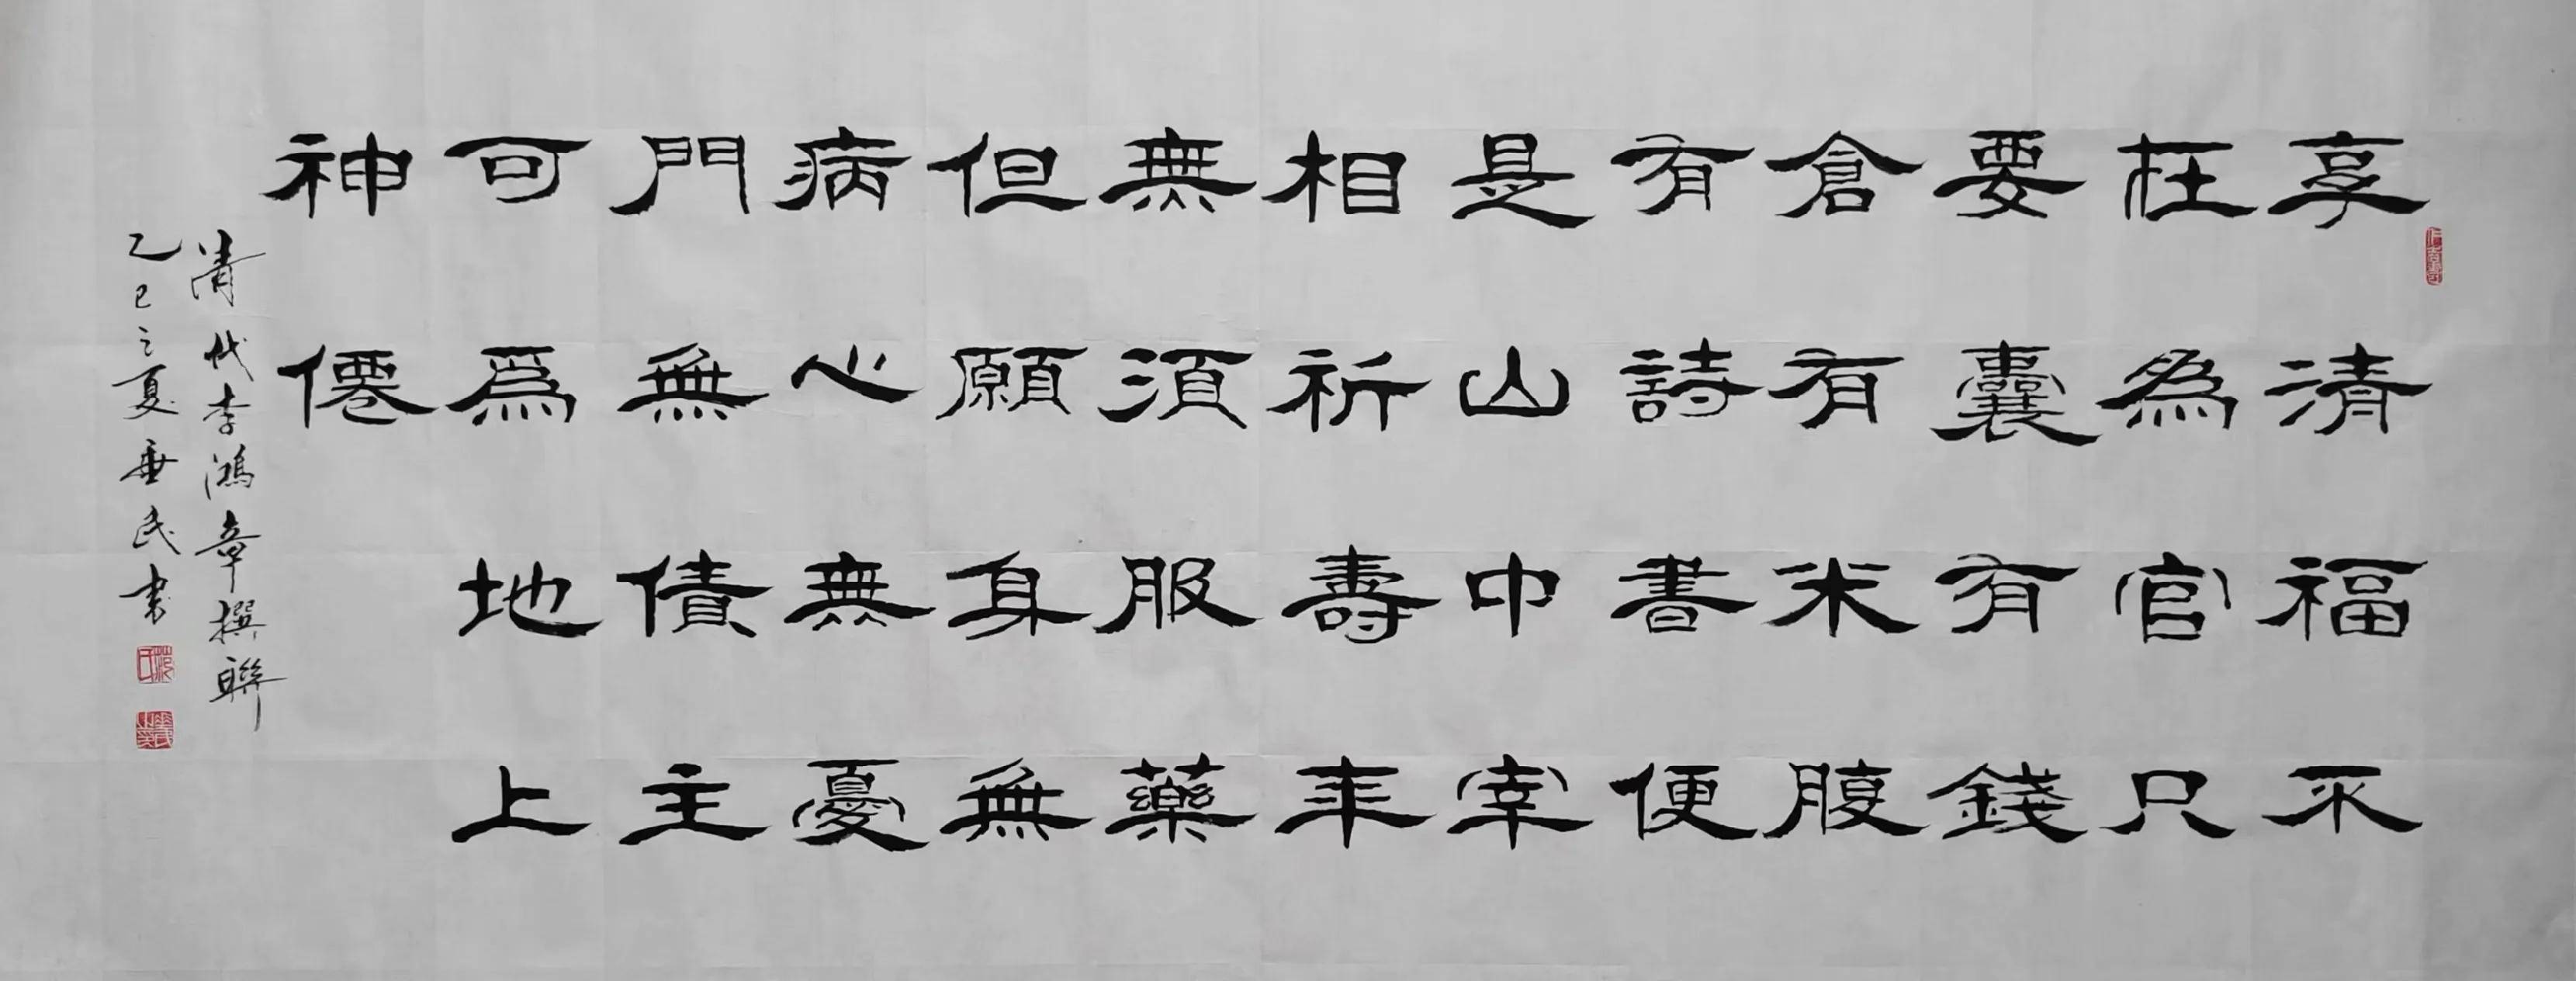 享清福不
在為官只
要囊有錢
倉有米腹
有詩書便
是山中宰
相祈壽年
無須服藥
但願身無
病心無憂
門無債主
可為地上
神僊
清代李鴻章撰聯
乙巳之夏 民書